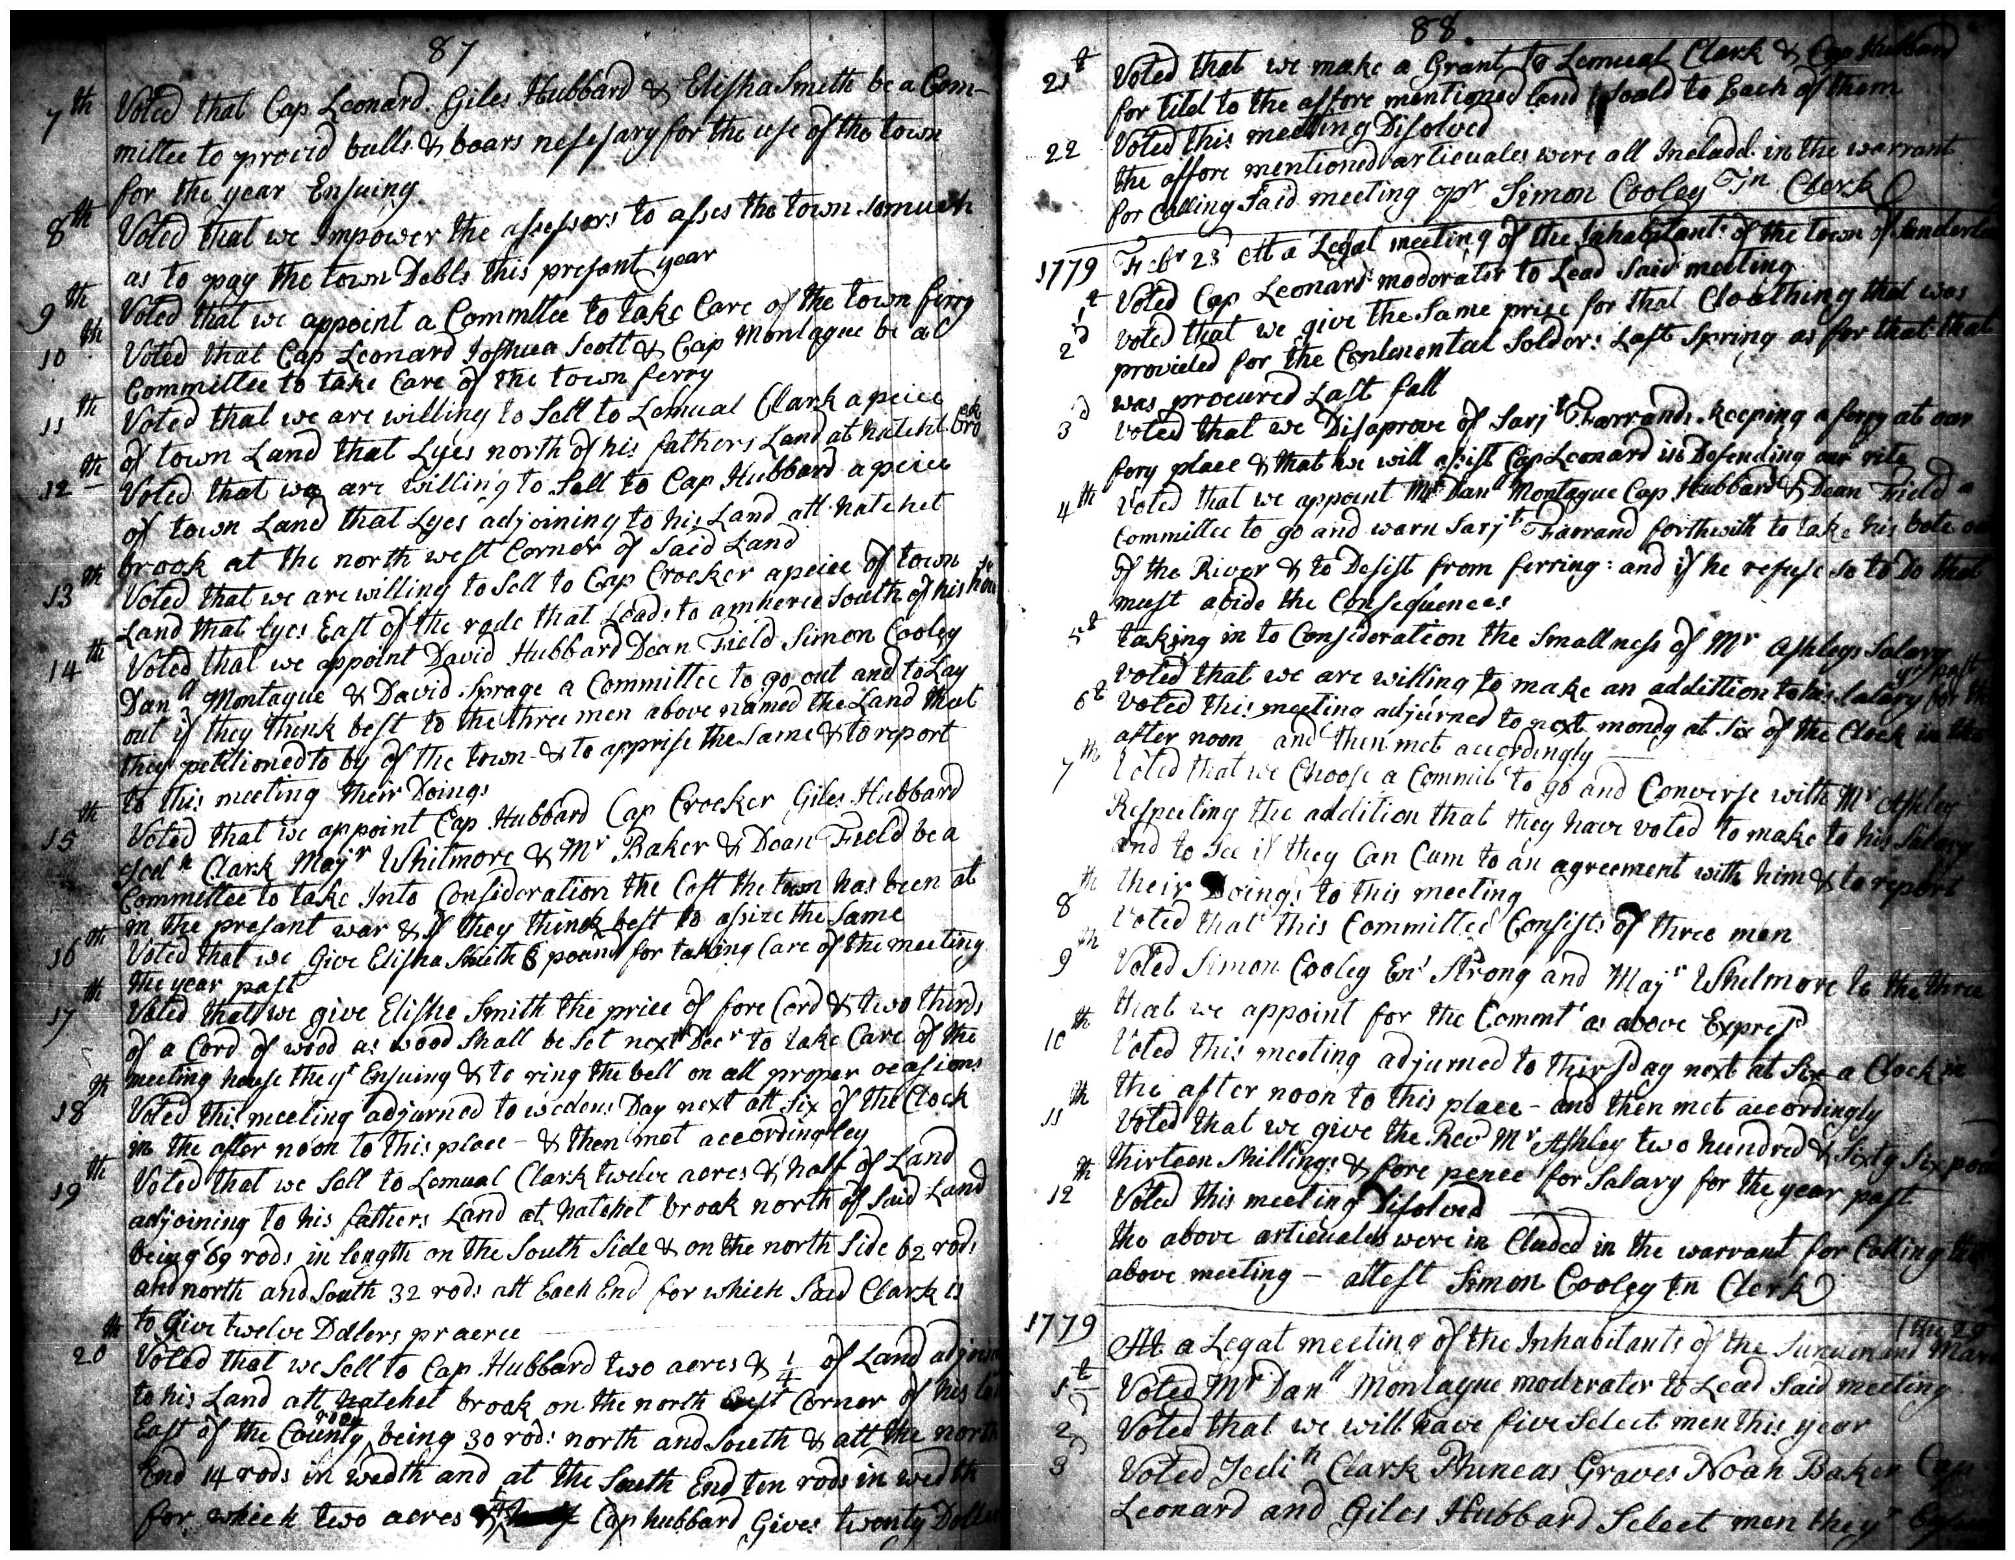 87
7th Voted that Cap Leonard Giles Hubbard & Elisha Smith be a Com-
mittee to provid bulls & boars nesesary for the use of the town
for the year Ensuing
8th Voted that we Impower the assessors to asses the town somuch
as to pay the town Debts this presant year
9th Voted that we appoint a Committee to take Care of the town ferry
10th Voted that Cap Leonard Joshua Scott & Cap Montague be a
Committee to take Care of the town ferry
11th Voted that we are willing to Sell to Lemual Clark a peice
of town Land that Lyes north of his fathers Land at hatchet brook
12th Voted that we are willing to Sell to Cap Hubbard a peice
of town Land that Lyes adjoining to his Land att hatchet
brook at the north west Corner of Said Land
13th Voted that we are willing to Sell to Cap Crocker a peice of town
Land that Lyes East of the rode that Leads to amherce South of his hou
14th Voted that we appoint David Hubbard Dean Field Simon Cooley
Danll Montague & David Sprage a Committee to go out and to Lay
out if they think best to the three men above named the Land that
they petitioned to by of the town & to apprise the Same & to report
to this meeting their Doings
15th Voted that we appoint Cap Hubbard Cap Crocker Giles Hubbard
Jedh Clark Majr Whitmore & Mr Baker & Dean Field be a
Committee to take Into Consideration the Cost the town has been at
in the presant war & if they think best to asize the Same
16th Voted that we Give Elisha Smith 6 pound for taking Care of the meeting
the year past
17th Voted that we give Elisha Smith the price of fore Cord & two thirds
of a Cord of wood as wood Shall be Set next Decr to take Care of the
meeting house the yr Ensuing & to ring the bell on all proper ocasions
18th Voted this meeting adjurned to wedens Day next att Six of the Clock
in the after noon to this place - & then met accordingley
19th Voted that we Sell to Lemual Clark twelve acres & half of Land
adjoining to his fathers Land at hatchet brook north of Said Land
being 69 rods in length on the South Side & on the north Side 62 rods
and north and South 32 rods att Each End for which Said Clark is
to Give twelve Dollers pr acree
20th Voted that we Sell to Cap Hubbard two acres & 1/4 of Land
to his Land att hatchet brook on the north Corner of his
East of the County road being 30 rods north and South & att the north
End 14 rods in wedth and at the South End ten rods in wedth
for which two acres Cap hubbard Gives twenty
88.
21t Voted that we make a Grant to Lemual Clark & Cap Hubbard
for titel to the affore mentioned Land Soald to Each of them
22 Voted this meeting Disolved
the affore mentioned articuales were all Includd in the warrant
for Calling Said meeting pr Simon Cooley Tn Clerk
1779 Febr 23 Att a Legal meeting of the Inhabitants of the town of
1t Voted Cap Leonard moderater to Lead Said meeting
2d voted that we give the Same prise for that Cloathing that was
provided for the Contenental Solders Last Spring as for that that
was procured Last fall
3d voted that we Disaprove of Sarjt Farrands keeping a ferry at our
fery place & that we will assist Cap Leonard in Defending our rite
4th voted that we appoint Mr Danll Montague Cap Hubbard & Dean Field a
Committee to go and warn Sarjt Farrand forthwith to take his bote
of the River & to Desist from ferring: and if he refuse so to Do that
must abide the Consequences
5t taking in to Consideration the Smallness of Mr Ashleys Salary
voted that we are willing to make an addittion to his Salary for the yr past
6t Voted this meeting adjurned to next mondy at Six of the Clock in the
after noon and then met accordingly
7th Voted that we Choose a Committ to go and Converse with Mr Ashley
Respecting the addition that they have voted to make to his Salary
and to See if they Can Cum to an agreement with him & to report
their Doings to this meeting
8th Voted that this Committee Consists of three men
9th Voted Simon Cooley Ens Strong and Majr Whitmore be the three
that we appoint for the Commtt as above Expresd
10th Voted this meeting adjurned to thirsday next at Six a Clock in
the after noon to this place - and then met accordingly
11th Voted that we give the Revd Mr Ashley two hundred & Sixty Six
thirteen Shillings & fore pence for Salary for the year past
12th Voted this meeting Disolved
the above articuales were in Cluded in the warrant for Calling the
above meeting - attest Simon Cooley tn Clerk
1779 Att a Legal meeting of the Inhabitants of the
1t Voted Mr Danll Montague moderater to Lead Said meeting
2d Voted that we will have five Select men this year
3d Voted Jedih Clark Phineas Graves Noah Baker Cap
Leonard and Giles Hubbard Select men the yr